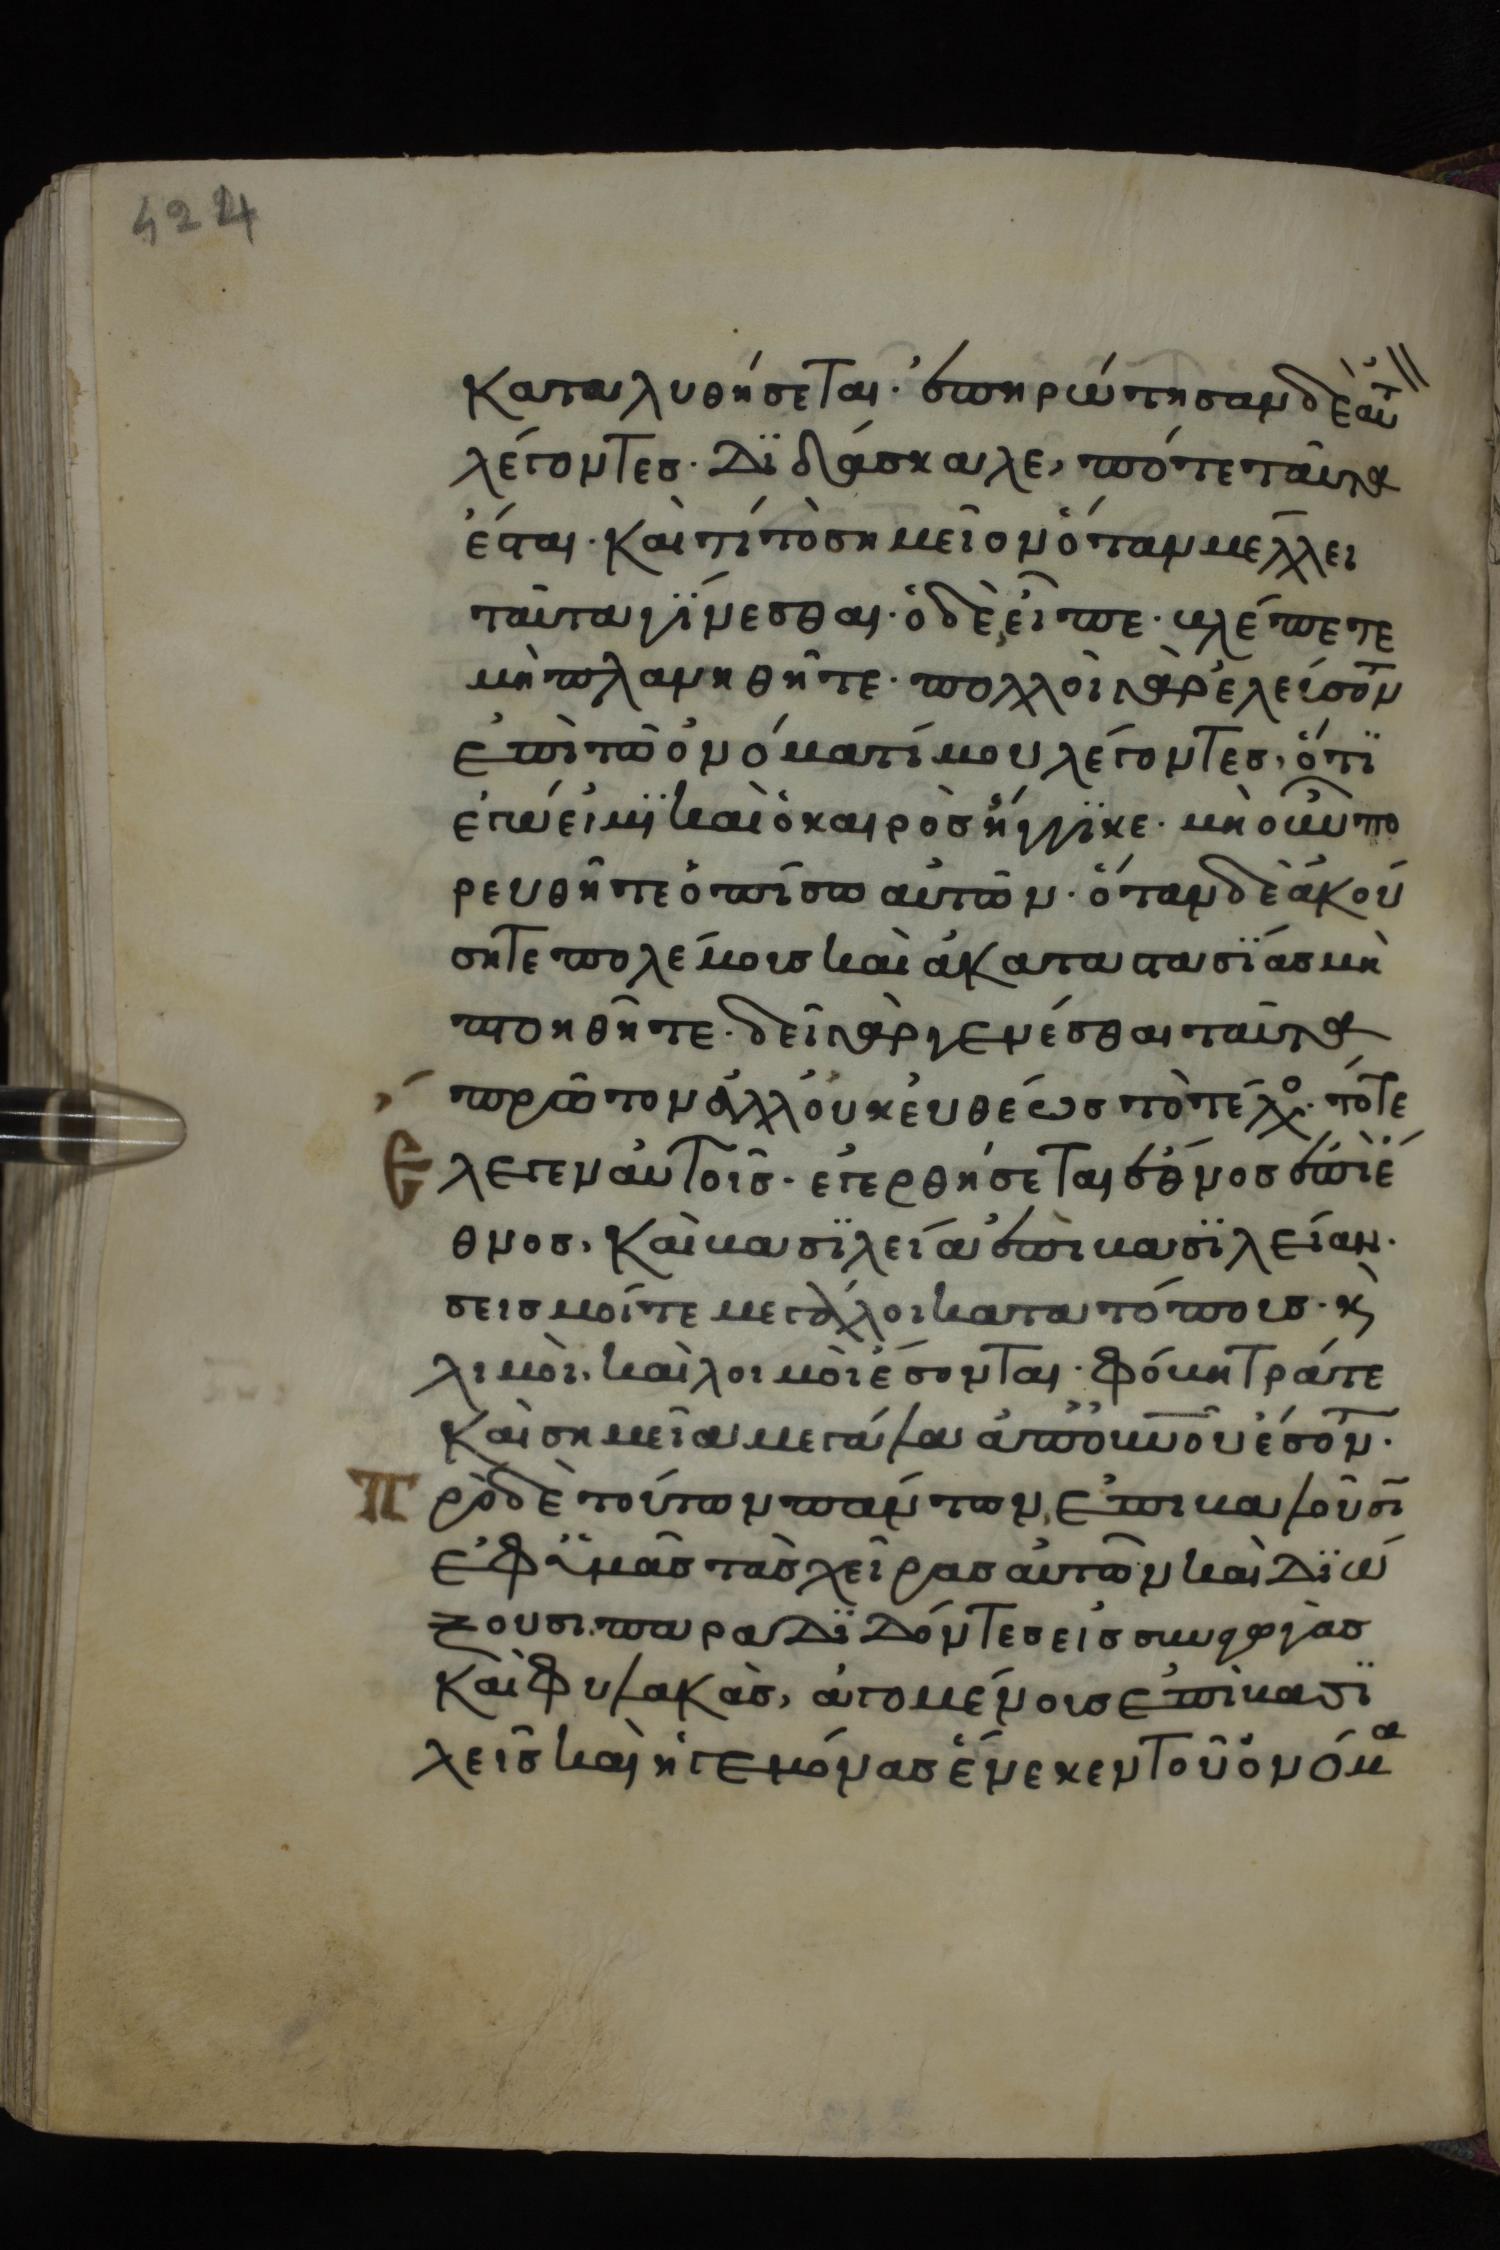 424
καταλυθήσεται· ἐπηρώτησαν δὲ αὐτ
λέγοντες· Διδάσκαλε, πότε ταῦτα
ἔσται· καὶ τί τὸ σημεῖον ὅταν μέλλει
ταῦτα γίνεσθαι· ὁ δὲ εἶπε· βλέπετε
μὴ πλανηθῆτε· πολλοὶ γὰρ ἐλεύσοντ
ἐπὶ τῶ ὀνόματί μου λέγοντες, ὅτι
ἐγώ εἰμι καὶ ὁ καιρὸς ἤγγικε· μὴ οὖν πο
ρευθῆτε ὀπίσω αὐτῶν· ὅταν δὲ ἀκού
σητε πολέμους καὶ ἀκαταστασίας μὴ
πτοηθῆτε· δεῖ γὰρ γενέσθαι ταῦτα
πρῶτον ἀλλ' οὐκ εὐθέως τὸ τέλος· τότε
ἔλεγεν αὐτοῖς· ἐγερθήσεται ἔθνος ἐπὶ ἔ
θνος, καὶ βασιλεία ἐπὶ βασιλείαν·
σεισμοί τε μεγάλοι κατα τόπους· κ
λιμοὶ, καὶ λοιμοὶ ἔσονται· φόβητρά τε
καὶ σημεῖα μεγάλα ἀπὸ οὐνοῦ ἔσοντ·
Πρὸ δὲ τούτων πάντων, ἐπιβαλοῦσι
ἐφ' ὑμᾶς τὰς χεῖρας αὐτῶν καὶ Διώ
ξουσι παραΔιΔόντες εἰς συναγωγὰς
καὶ φυλακὰς, ἀγομένους ἐπὶ βασι
λεῖς καὶ ἡγεμόνας ἕνεκεν τοῦ ὀνόμα